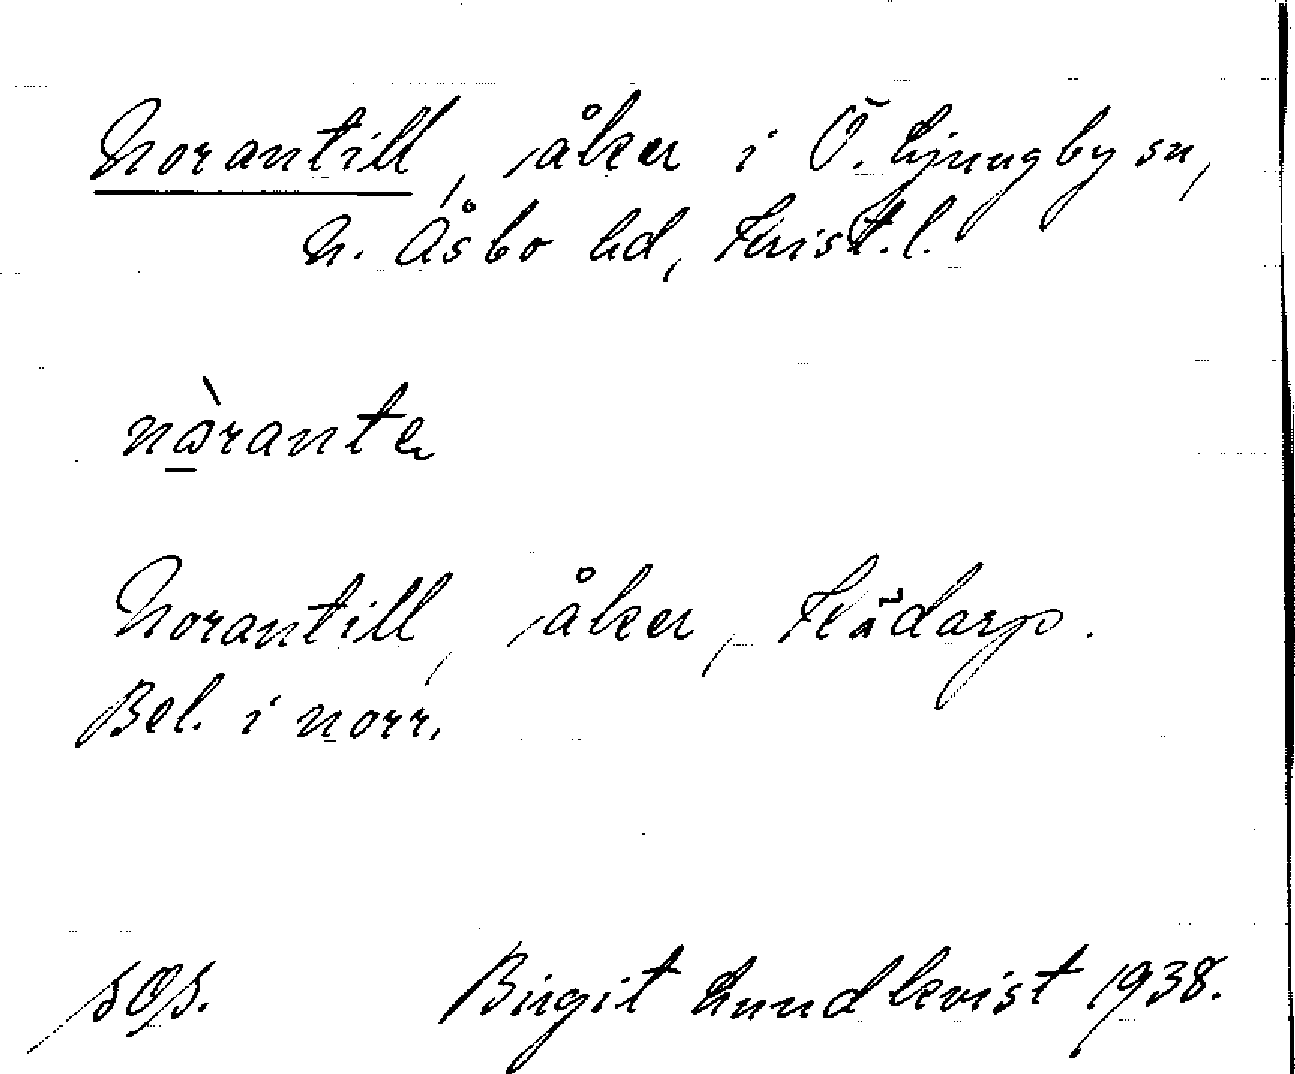 Norantill, åker i Ö. Ljungby sn,
N. Åsbo hd, Krist. l.
Norantill, åker, Klådarp.
Bel. i norr.
sop. Birgit Lundkvist 1938.